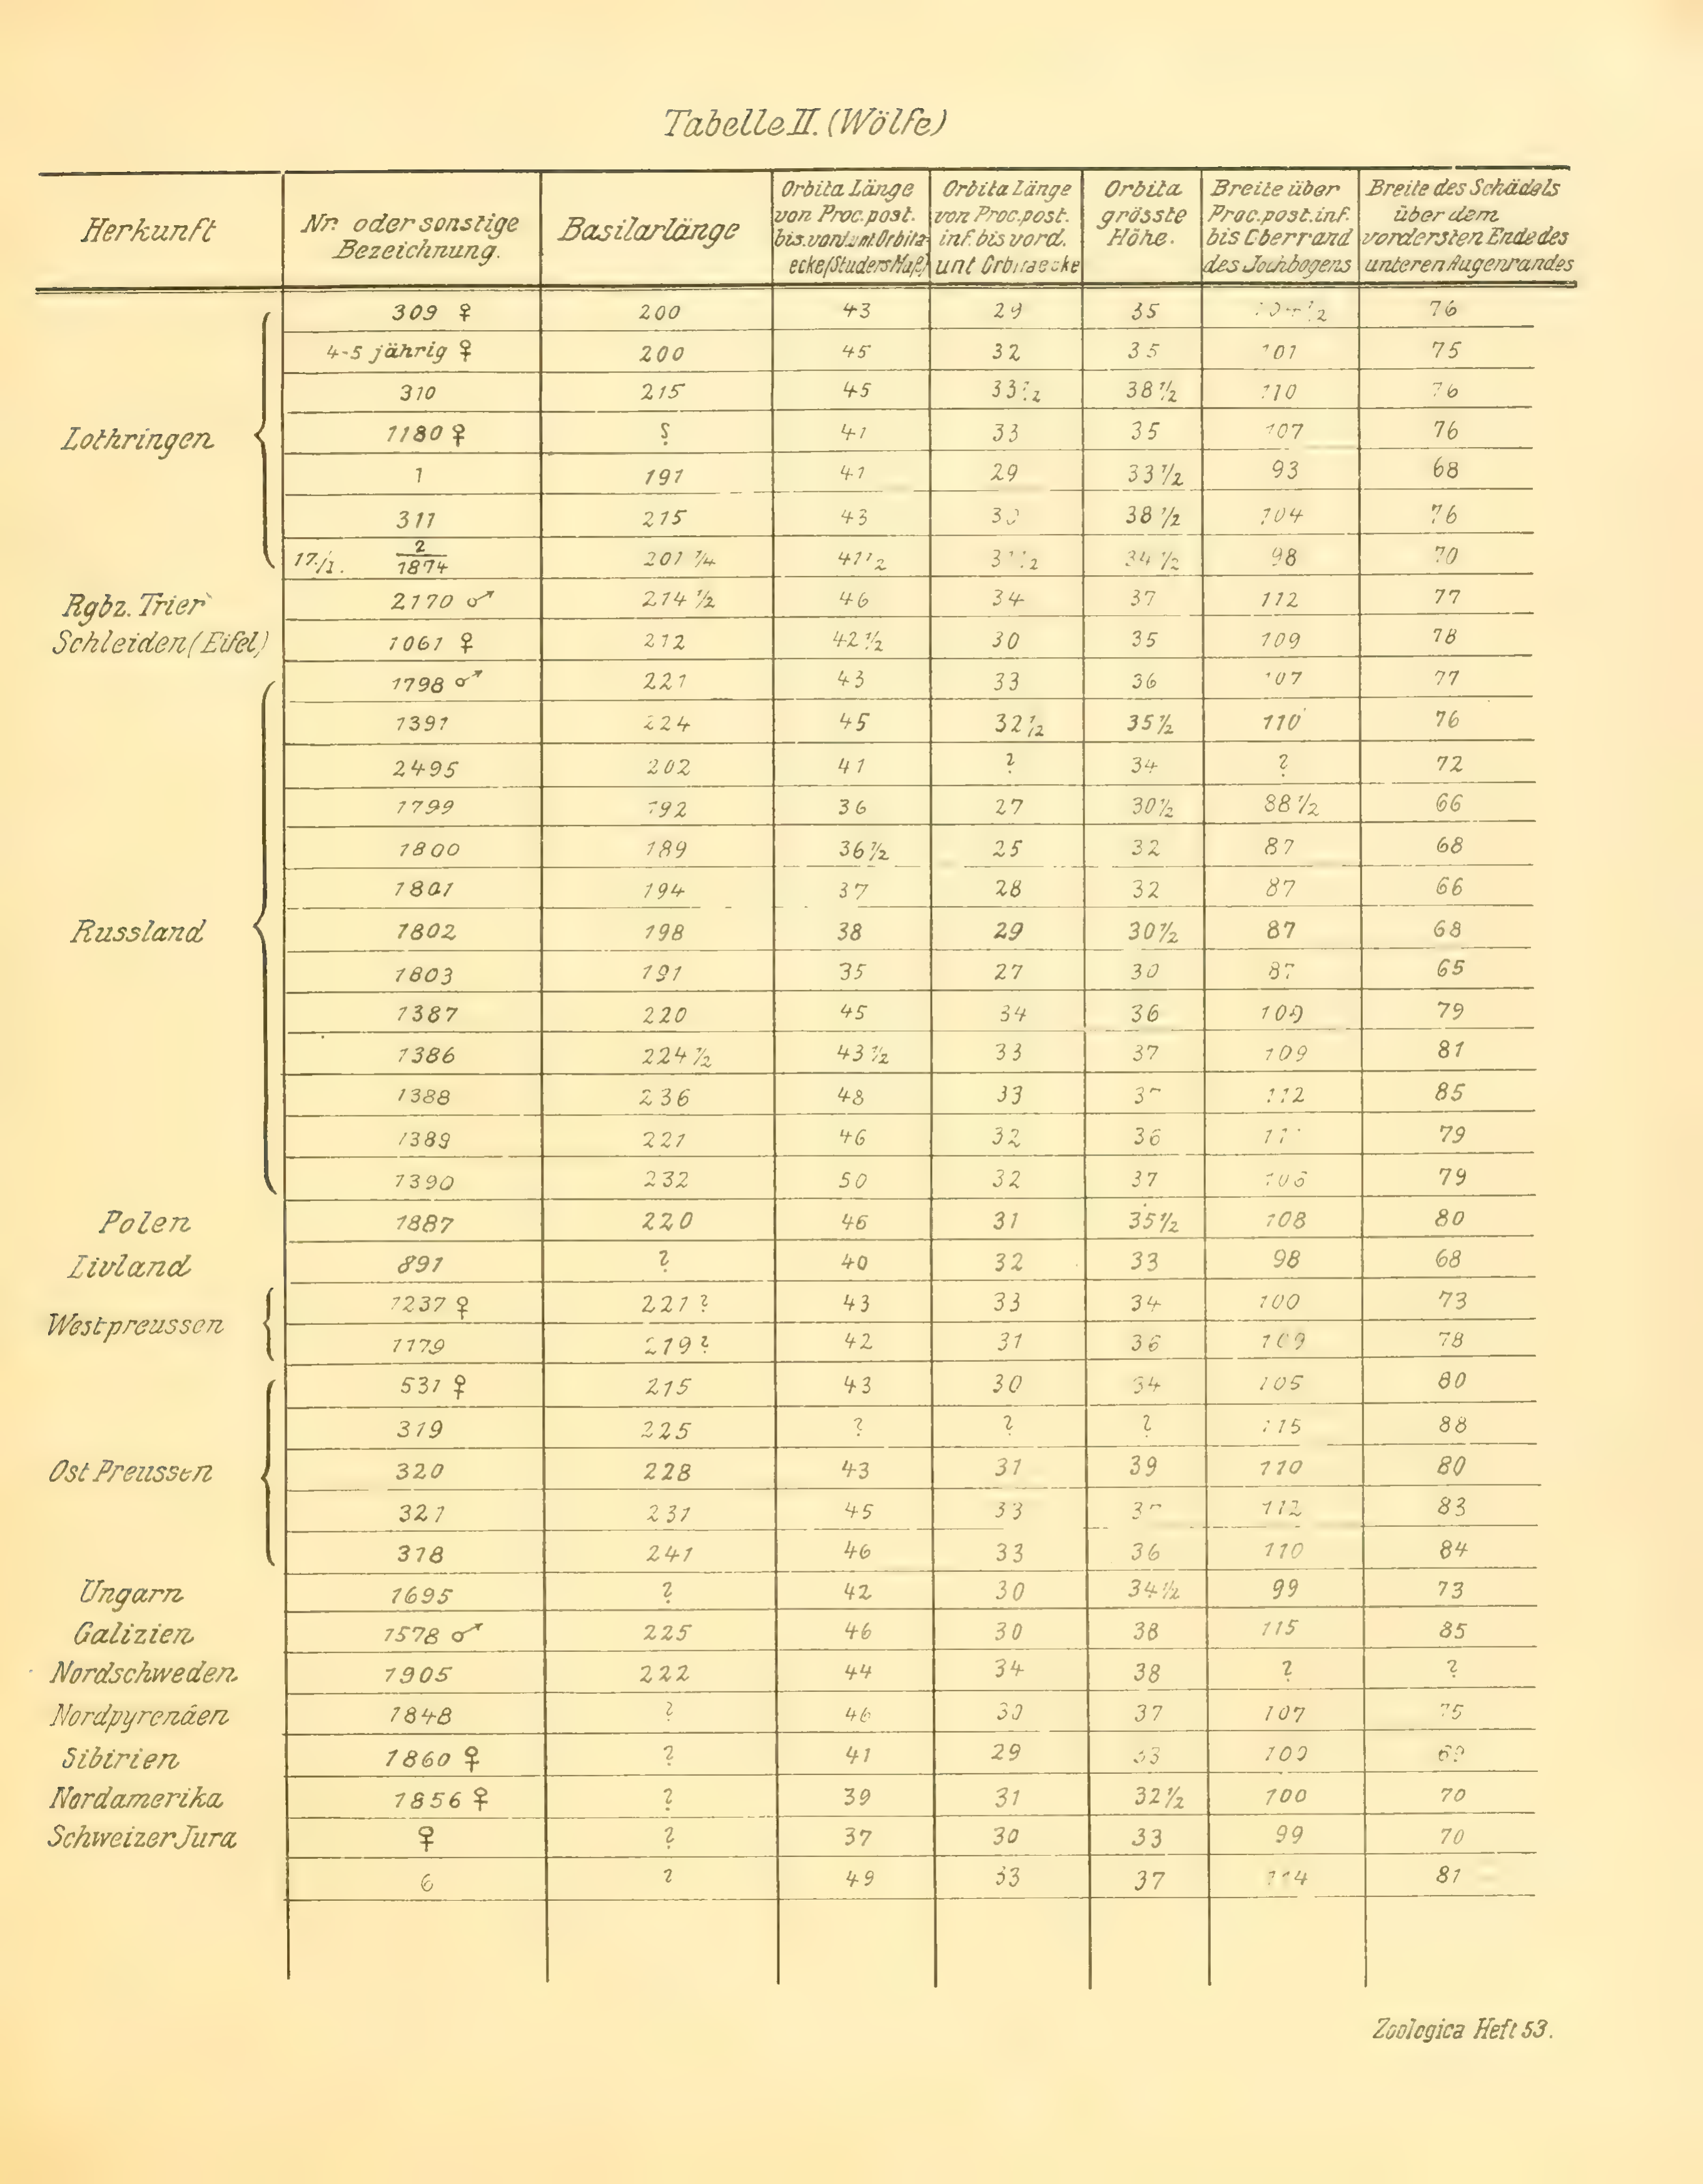 Tabelle II. (Wölfe)
Herkunft
Nr. oder sonstige
Bezeichnung.
Basilarlänge
Orbita Länge
von Proc. post.
bis. vord. unt Orbita-
ecke (Studers Maß)
Orbita Länge
von Proc. post.
inf. bis vord.
unt Orbitaecke
Orbita
grösste
Höhe.
Breite über
Proc. post. inf.
bis Oberrand
des Jochbogens
Breite des Schädels
über dem
vordersten Ende des
unteren Augenrandes
Lothringen
309 ♀ 200 43 29 35 76
4-5 jährig ♀ 200 45 32 35 101 75
310 215 45 33½ 38½ 110 76
1180 ♀ ? 41 33 35 107 76
1 191 41 29 33½ 93 68
311 215 43 38½ 104 76
17./1. 2/1874 201¼ 41½ 31½ 34½ 98 70
Rgbz. Trier 2170 ♂ 214½ 46 34 37 112 77
Schleiden (Eifel) 1061 ♀ 212 42½ 30 35 109 78
Russland
1798 ♂ 221 43 33 36 107 77
1391 224 45 32½ 35½ 110 76
2495 202 41 ? 34 ? 72
1799 192 36 27 30½ 88½ 66
1800 189 36½ 25 32 87 68
1801 194 37 28 32 87 66
1802 198 38 29 30½ 87 68
1803 191 35 27 30 87 65
1387 220 45 34 36 79
1386 224½ 43½ 33 37 109 81
1388 236 48 33 112 85
1389 221 46 32 36 79
1390 232 50 32 37 106 79
Polen 1887 220 46 31 35½ 108 80
Livland 891 ? 40 32 33 98 68
Westpreussen
1237 ♀ 221? 43 33 34 100 73
1179 219? 42 31 36 109 78
Ost Preussen
531 ♀ 215 43 30 34 105 80
319 225 ? ? ? 115 88
320 228 43 31 39 110 80
321 231 45 33 112 83
318 241 46 33 36 110 84
Ungarn 1695 ? 42 30 34½ 99 73
Galizien 1578 ♂ 225 46 30 38 115 85
Nordschweden 1905 222 44 34 38 ? ?
Nordpyrenäen 1848 ? 46 30 37 107 75
Sibirien 1860 ♀ ? 41 29 33
Nordamerika 1856 ♀ ? 39 31 32½ 100 70
Schweizer Jura ♀ ? 37 30 33 99 70
6 ? 49 33 37 114 81
Zoologica Heft 53.